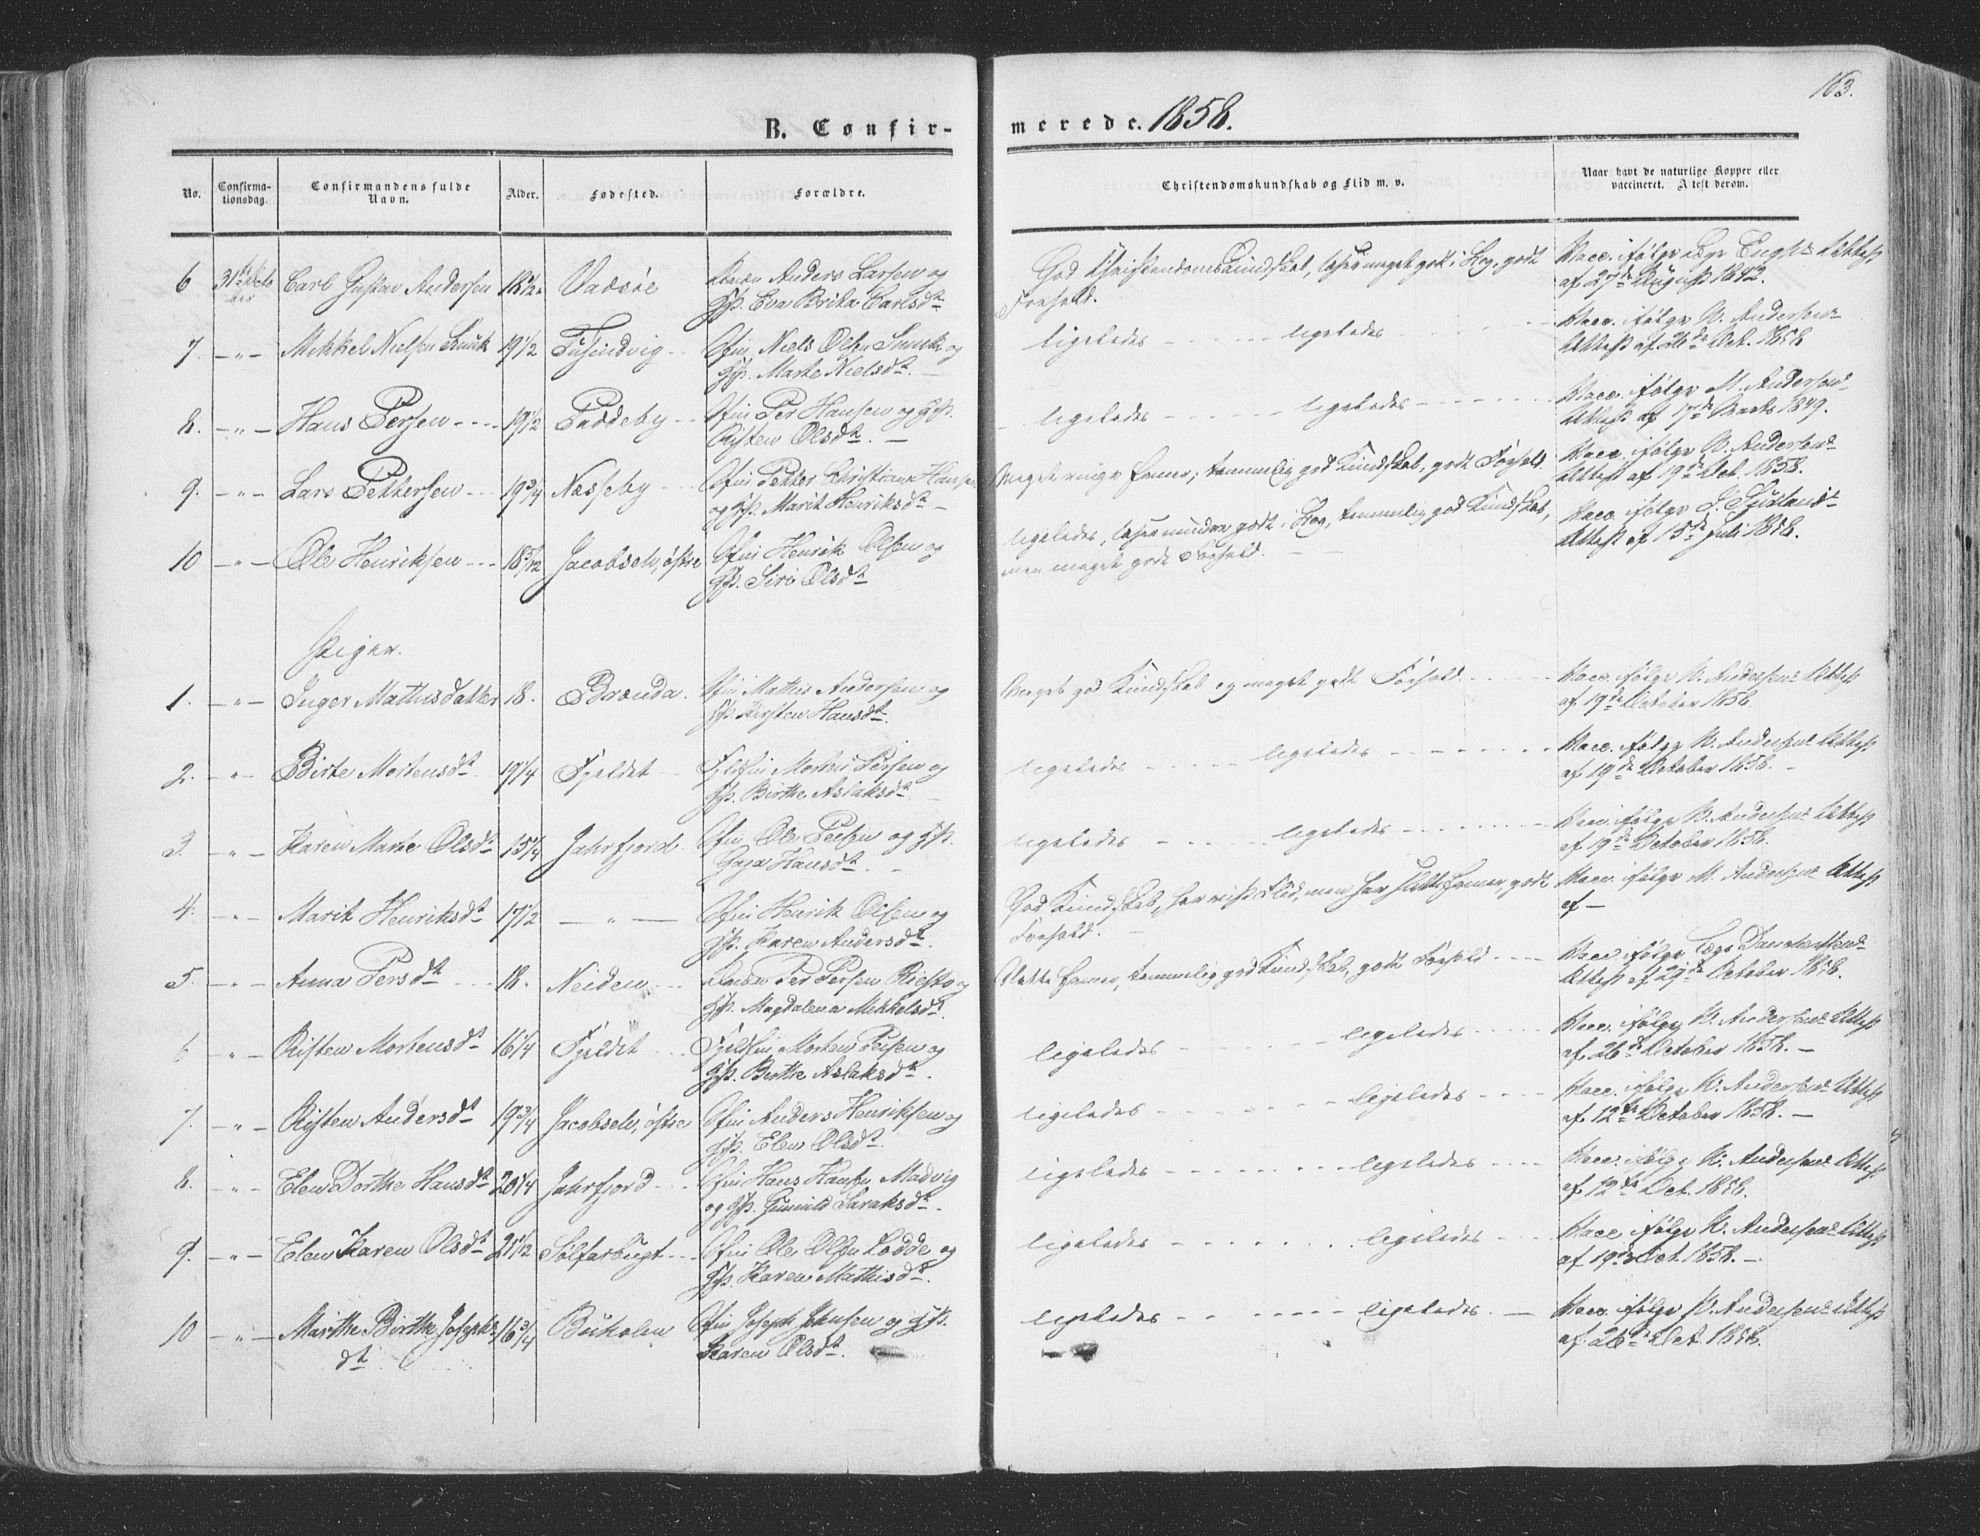 163.
B. Confir-
merede. 1858.
No.
Confirma-
tionsdag.
Confirmandens fulde
Navn.
Alder.
Fødested.
Forældre.
Christendomskundskab og Flid m. v.
Naar havt de naturlige Kopper eller
vaccineret. Attest derom.
6 31te Octo Carl Gustav Andersen 18½ Vadsøe Anders Larsen og
ber Gft. Eva Brita Carlsdt
God Christendomskundskab, læser meget godt i Bog, godt
Forhold.
Vacc. ifølge Attest
af 27de August 1842.
7. -"- Mikkel Nielsen 19½ Niels Olsen og
Gft. Marte Nielsdt.
ligeledes ligeledes
Vacc. ifølge N. Andersens
Attest af 26de Oct. 1858
8. -"- Hans Persen 19½ Paddeby Per Hansen og Gft.
Risten Olsdt.
ligeledes ligeledes
Vacc. ifølge M. Andersens
Attest af 17de Marts 1849.
9. -"- Lars Pettersen 19¾ Nesseby Petter Christian Hansen
og Gft. Marit Henriksdt
Meget ringe Evner, temmelig god Kundskab, godt Forhold.
Vacc. ifølge N. Andersens
Attest af 19de Oct. 1858.
10 -"- Ole Henriksen 18 5/12 Jacobselv, østre Henrik Olsen og
Gft. Siri Olsdt
ligeledes, læser mindre godt i Bog, temmelig god Kundskab,
men meget godt Forhold.
Vacc. ifølge
Attest af 15de Juli 1858.
Piger.
1. -"- Inger Mathisdatter 18. Mathis Andersen og
Gft. Kirsten Hansdt.
Meget god Kundskab og meget godt Forhold
Vacc. ifølge N. Andersens Attest
af 19de October 1858.
2. -"- Birte Mortensdt. 19¼ Fjeldet Morten Persen og
Gft. Birthe Aslaksdt.
ligeledes ligeledes
Vacc. ifølge N. Andersens Attest
af 19de October 1858.
3. -"- Karen Marie Olsdt 15¼ Jahrfjord Ole Peersen og Gft.
Hansdt.
ligeledes ligeledes
Vacc. ifølge N. Andersens Attest
af 19de October 1858.
4. -"- Marit Henriksdt 17½ -"- Henrik Olsen og
Gft. Karen Andersdt.
God Kundskab, har vist Flid, men har slette Evner, godt
Forhold.
Vacc. ifølge M. Andersens Attest
af -
5. -"- Anna Persdt 18. Neiden Per Persen og
Gft. Magdalena Mikkelsdt.
Slette Evner, temmelig god Kundskab, godt Forhold
Vacc. ifølge Læge
Attest af 29de October 1858.
6 -"- Risten Mortensdt 16¼ Fjeldet Morten Persen og
Gft. Birthe Aslaksdt.
ligeledes ligeledes
Vacc. ifølge N. Andersens Attest
af 26de October 1858.
7. -"- Risten Andersdt 19¾ Jacobselv, østre Anders Henriksen og
Gft. Elen Olsdt.
ligeledes ligeledes
Vacc. ifølge N. Andersens Attest
af 12te October 1858.
8. -"- Elen Dorthe Hansdt 20¼ Jahrfjord Hans Hansen Madvig
og Gft. Gunild
ligeledes ligeledes
Vacc. ifølge N. Andersens Attest
af 12te Oct. 1858.
9. -"- Elen Karen Olsdt 21½ Sølfarbugt Ole Olsen Lodde og
Gft. Karen Mathisdt.
ligeledes ligeledes
Vacc. ifølge N. Andersens Attest
af 19de Oct. 1858.
10 -"- Marithe Birthe Josephs 16¾ Buholm Joseph Johnsen og Gft.
dt. Karen Olsdt.
ligeledes ligeledes
Vacc. ifølge N. Andersens Attest
af 26de Oct. 1858.